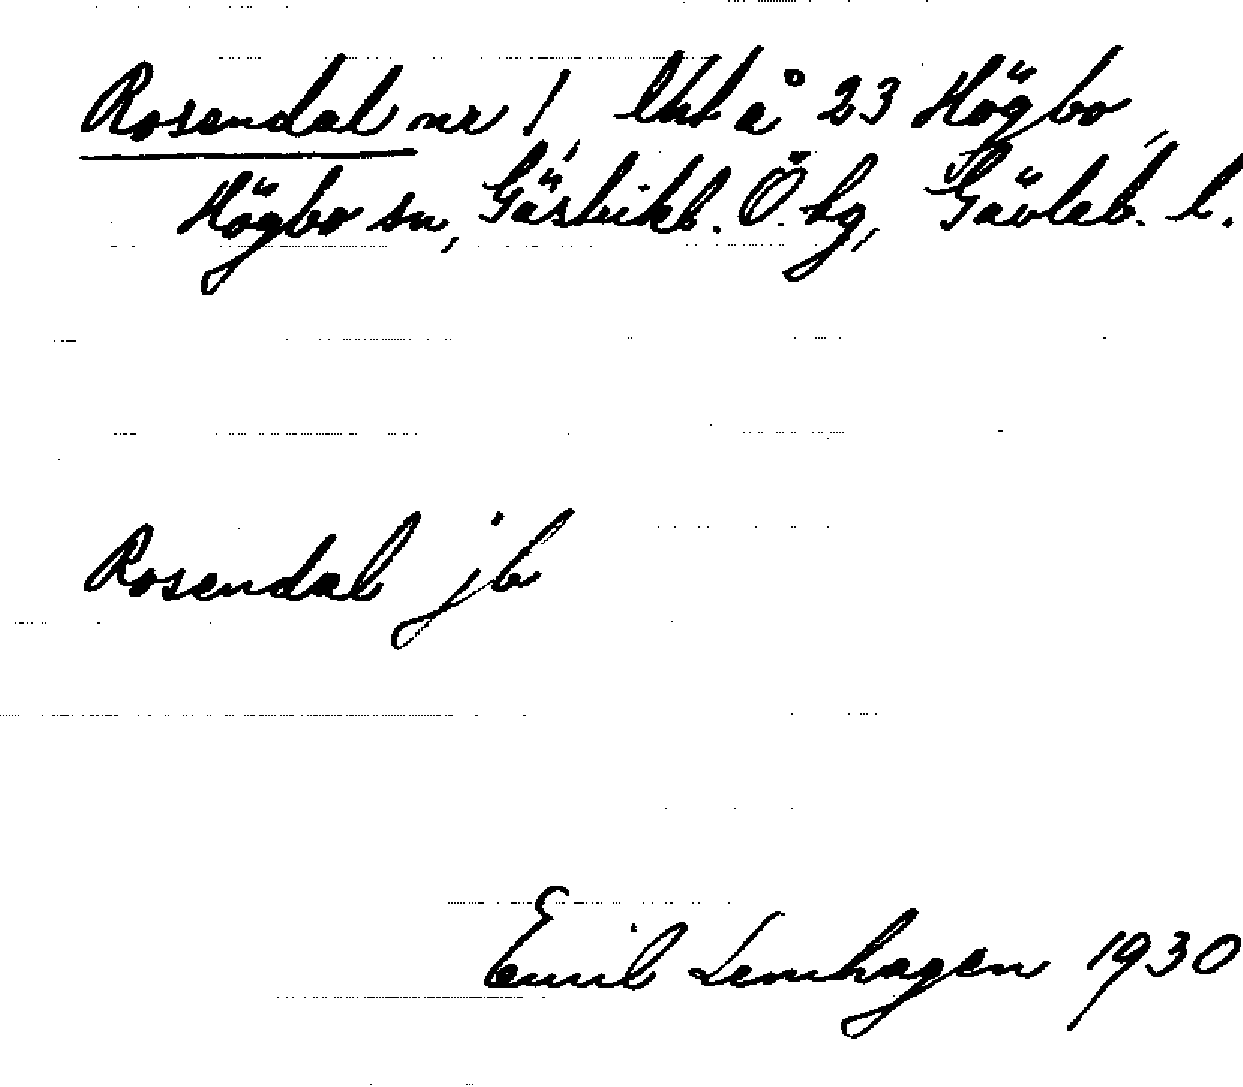 Rosendal nr 1, Unt å 23 Högbo,
Högbo sn, Gästrikl. Ö. hg, Gävleb. l.
Rosendal jb
Emil Lemhagen 1930